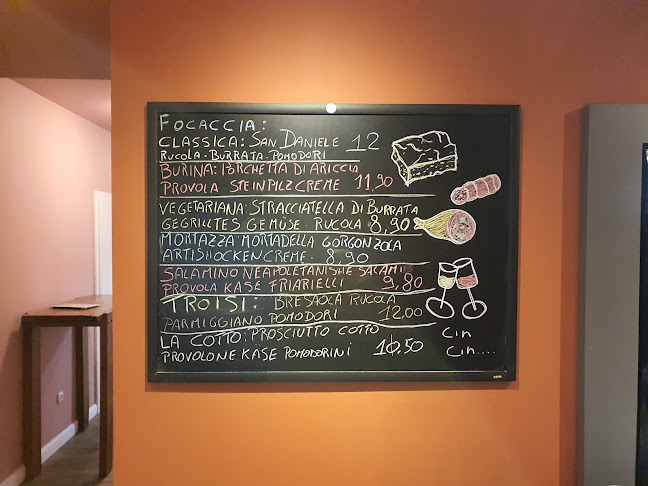 FOCACCIA:
CLASSICA: SAN DANIELE 12
RUCOLA - BURRATA - POMODORI
BURINA: PORCHETTA DI ARICCIA
PROVOLA STEINPILZCREME 11,90
VEGETARIANA: STRACCIATELLA DI BURRATA
GEGRILLTES GEMÜSE - RUCOLA 8,90
MORTAZZA MORTADELLA GORGONZOLA
ARTISHOCKENCREME - 8,90
SALAMINO NEAPOLETANISHE SALAMI
PROVOLA KASE FRIARIELLI 9,80
TROISI: BRESAOLA RUCOLA
PARMIGGIANO POMODORI 12.00
LA COTTO: PROSCIUTTO COTTO
PROVOLONE KASE POMODORINI 10,50
CIN
CIN....